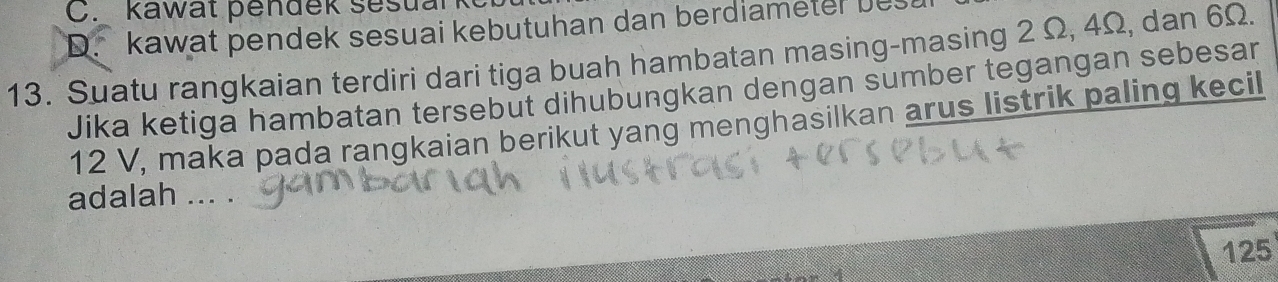 C. kawat pendek sesuai
D. kawat pendek sesuai kebutuhan dan berdiameter besar
13. Suatu rangkaian terdiri dari tiga buah hambatan masing-masing 2 Ω, 4Ω, dan 6Ω.
Jika ketiga hambatan tersebut dihubungkan dengan sumber tegangan sebesar
12 V, maka pada rangkaian berikut yang menghasilkan arus listrik paling kecil
adalah ... . gambarlah ilustrasi tersebut
125